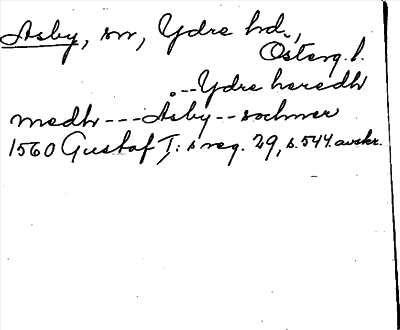 Asby, sn, Ydre hd.,
Österg. l.
.--Ydre heredh
medh---Asby--sochner
1560 Gustaf I:s reg. 29, s. 544. avskr.